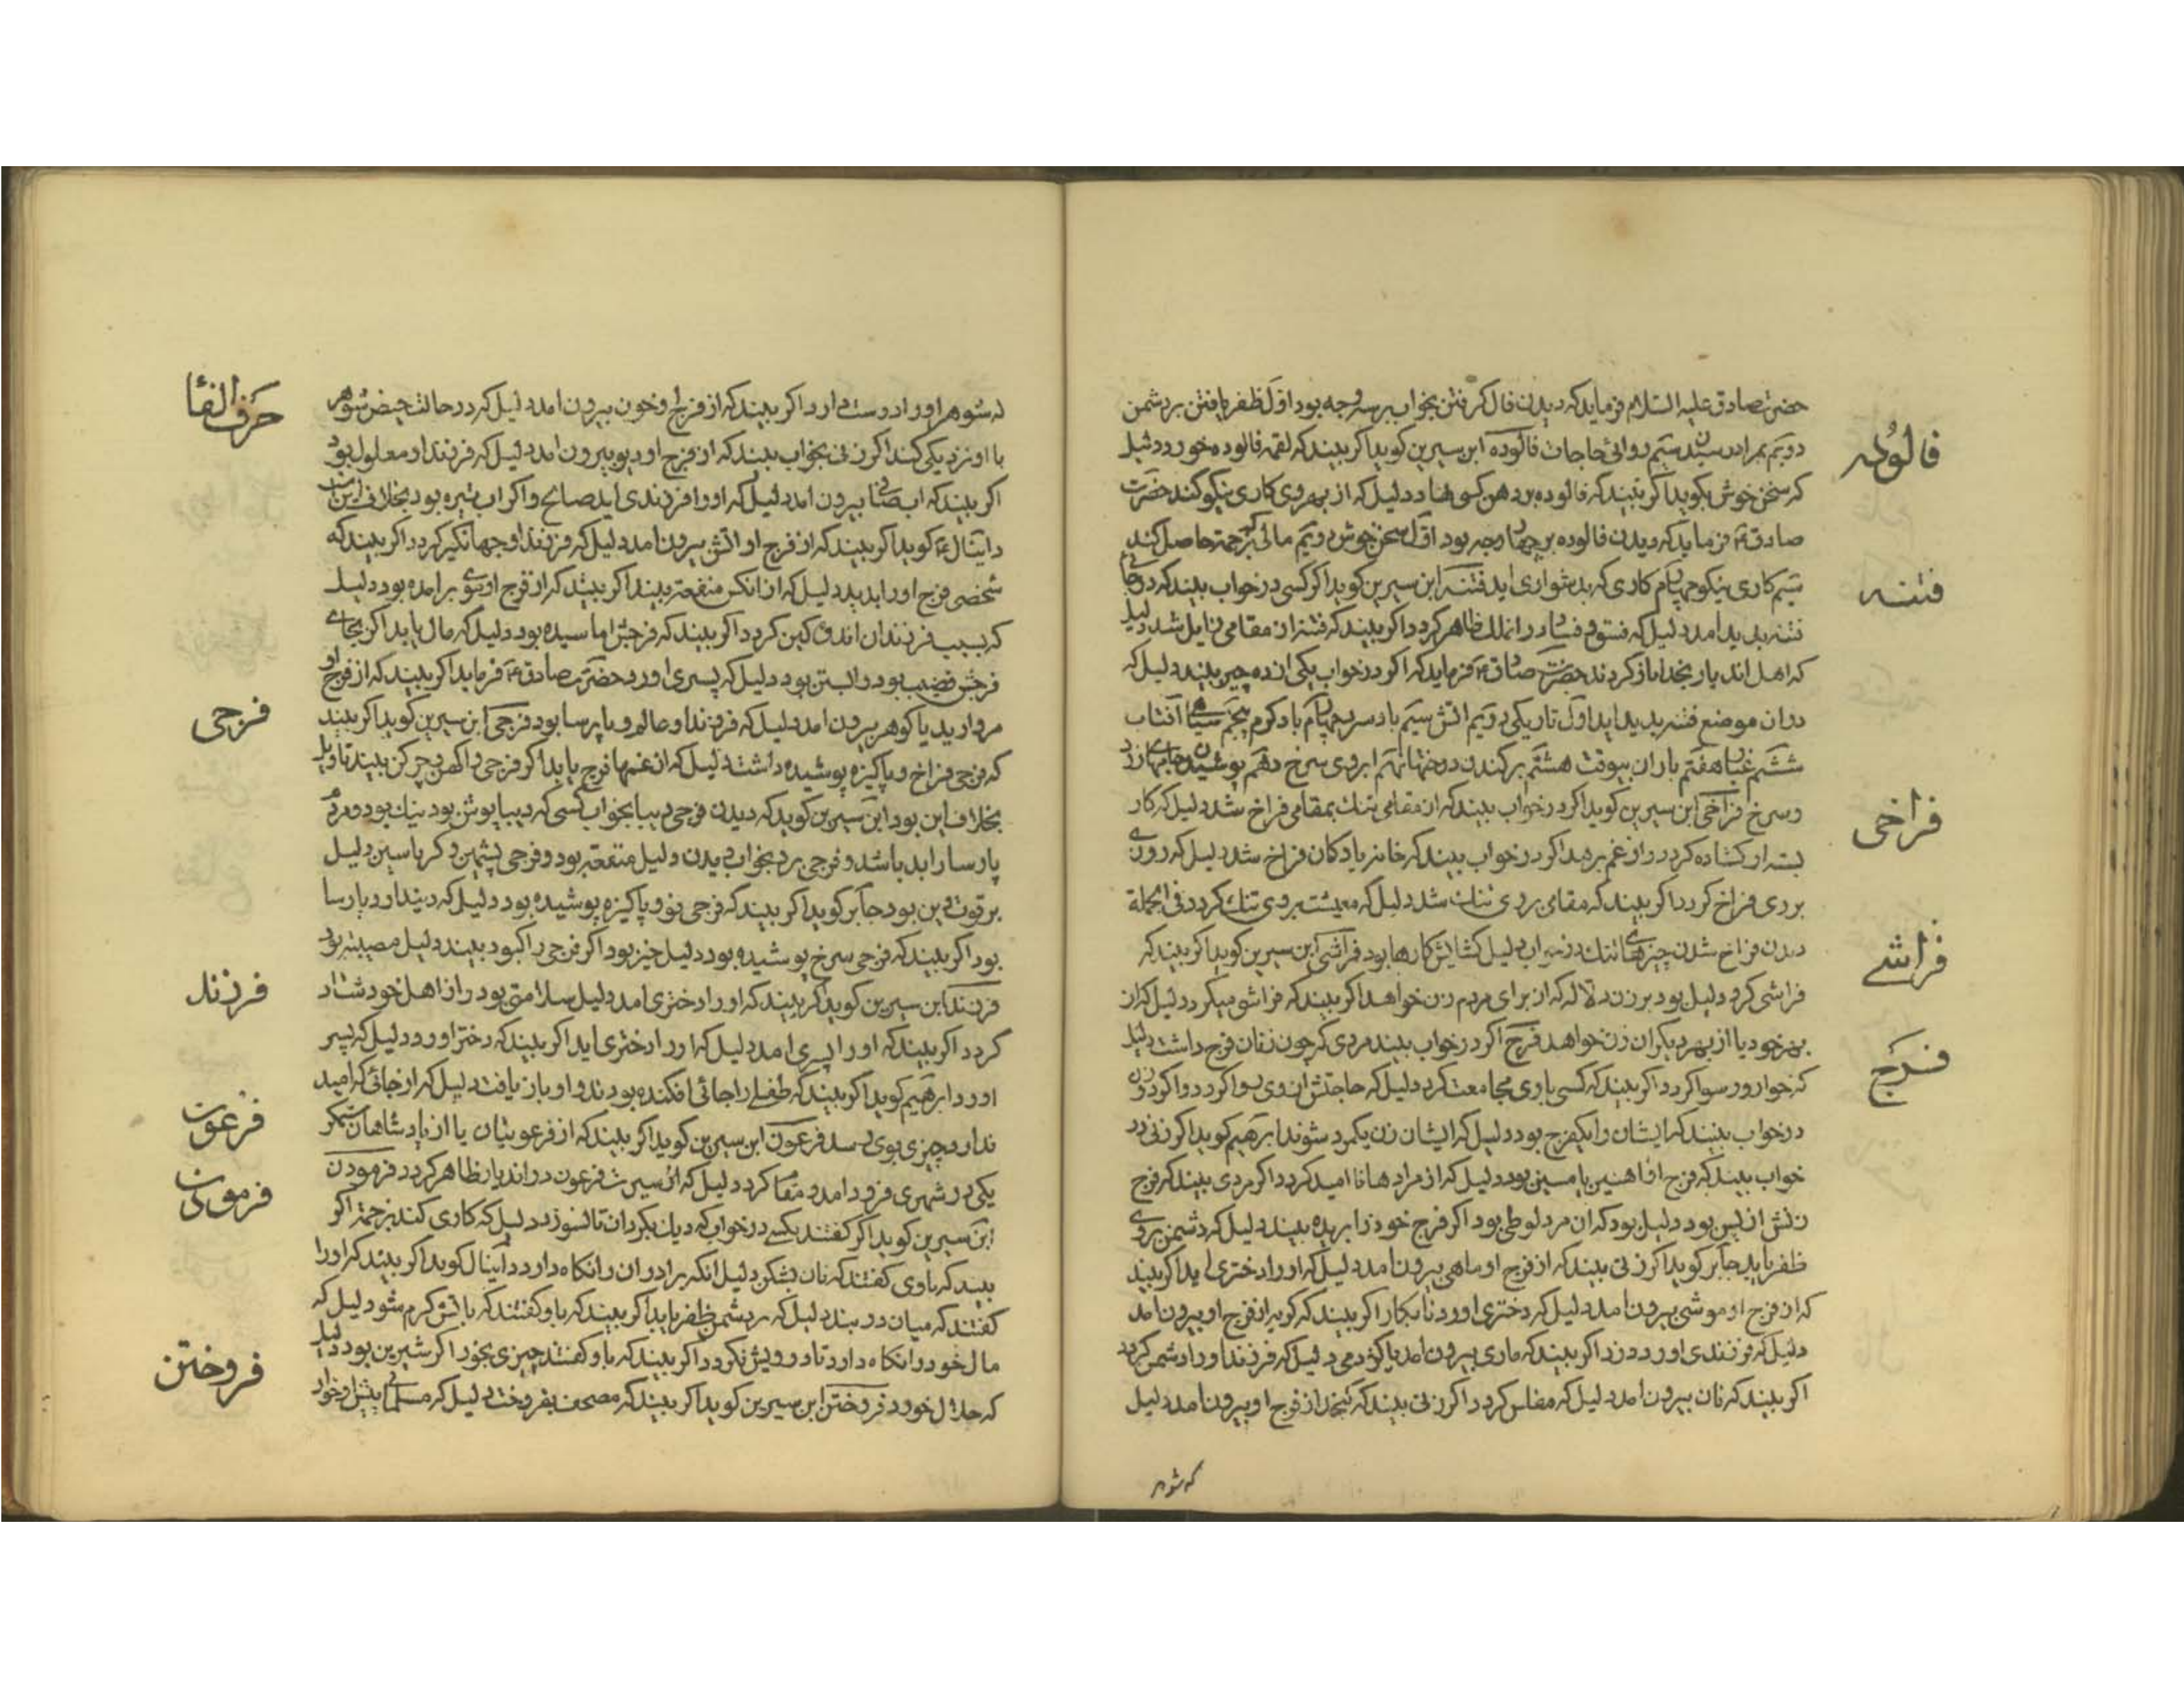 حضرت صادق علیه السلام فرماید که دیدن فال کرفتن بخواب بر سه وجه بود اول ظفر یافتن بر دشمن
دویم بمراد رسیدن سیم روائی حاجات فالوده ابن سیرین کوید اکر بیند که لقمه فالوده میخورد دلیل
فالوده
که سخن خوش بکوید اکر بیند که فالوده بر دهن کسی نهاد دلیل که از بهر وی کاری نیکو کند حضرت
صادق ع فرماید که دیدن فالوده بر چهار وجه بود اول سخن خوش دویم مالی که بزحمت حاصل کند
سیم کاری نیکو چهارم کاری که بدشواری اید فتنه ابن سیرین کوید اکر کسی در خواب بیند که در جائی
فتنه
فتنه بدید امد دلیل که فسق و فساد در انملک ظاهر کردد اکر بیند که فتنه از ان مقامی زایل شد دلیل
که اهل اندیار بخدا باز کردند حضرت صادق ع فرماید که اکر در خواب یکی از ده چیز بیند دلیل که
دران موضع فتنه بدید اید اول تاریکی دویم اتش سیم باد سرد چهارم باد کرم پنجم سیاهی آفتاب
ششم غبار هفتم باران بیوقت هشتم برکندن درختها نهم ابروی سرخ دهم پوشیدن جامهای زرد
و سرخ فراخی ابن سیرین کوید اکر در خواب بیند که از مقامی تنک بمقامی فراخ شد دلیل که کار
فراخی
بسته او کشاده کردد و از غم برهد اکر در خواب بیند که خانه یا دکان فراخ شد دلیل که روزی
بر وی فراخ کردد اکر بیند که مقامی بر وی تنک شد دلیل که معیشت بر وی تنک کردد فی الجمله
دیدن فراخ شدن چیزهای تنک در خواب دلیل کشایش کارها بود فراشی ابن سیرین کوید اکر بیند که
فراشی
فراشی کرد دلیل بود بر زن دلاله که از برای مردم زن خواهد اکر بیند که فراشی میکرد دلیل که از
بهر خود یا از بهر دیکران زن خواهد فرج اکر در خواب بیند مردی که چون زنان فرج داشت دلیل
فرج
که خوار و رسوا کردد اکر بیند که کسی با وی مجامعت کرد دلیل که حاجتش از وی روا کردد و اکر دو زن
در خواب بینند که ایشان را یکفرج بود دلیل که ایشان زن یکمرد شوند ابرهیم کوید اکر زنی در
خواب بیند که فرج او اهنین یا مسین بود دلیل که از مرادها نا امید کردد اکر مردی بیند که فرج
زنش از پس بود دلیل بود که ان مرد لوطی بود اکر فرج خود را بریده بیند دلیل که دشمن بر وی
ظفر یابد جابر کوید اکر زنی بیند که از فرج او ماهی بیرون امد دلیل که او را دختری اید اکر بیند
که از فرج او موشی بیرون امد دلیل که دختری اورد نابکار اکر بیند که کربه از فرج او بیرون امد
دلیل که فرزندی اورد دزد اکر بیند که ماری بیرون امد یا کژدمی دلیل که فرزند او را دشمن کردد
اکر بیند که نان بیرون امد دلیل که مفلس کردد اکر زنی بیند که کنجد از فرج او بیرون امد دلیل
که شوهر
که شوهر او را دوست دارد اکر بیند که از فرج او خون بیرون امد دلیل که در حالت حیض شوهر
حرف الفا
با او نزدیکی کند اکر زنی بخواب بیند که از فرج او دیو بیرون امد دلیل که فرزند او معلول بود
اکر بیند که اب صافی بیرون امد دلیل که او را فرزندی اید صالح و اکر اب تیره بود بخلاف این است
دانیال ع کوید اکر بیند که از فرج او اتش بیرون امد دلیل که فرزند او جهانکیر کردد اکر بیند که
شخصی فرج او را بدید دلیل که از انکس منفعت بیند اکر بیند که از فرج او موی بر امده بود دلیل
که بسبب فرزندان اندوهکین کردد اکر بیند که فرجش اماسیده بود دلیل که مال یابد اکر بجای
فرجش قضیب بود و ابستن بود دلیل که پسری اورد حضرت صادق ع فرماید اکر بیند که از فرج او
مروارید یا کوهر بیرون امد دلیل که فرزند او عالم و پارسا بود فرجی ابن سیرین کوید اکر بیند
فرجی
که فرجی فراخ و پاکیزه پوشیده داشت دلیل که از غمها فرج یابد اکر فرجی را کهن و چرکن بیند تاویل
بخلاف این بود ابن سیرین کوید که دیدن فرجی دیبا بخواب کسی که دیبا پوش بود نیک بود و مردم
پارسا را بد باشد و فرجی برد بخواب دیدن دلیل منفعت بود و فرجی پشمین و کرباسین دلیل
بر قوت دین بود جابر کوید اکر بیند که فرجی نو و پاکیزه پوشیده بود دلیل که دیندار و پارسا
بود اکر بیند که فرجی سرخ پوشیده بود دلیل خیز بود اکر فرجی را کبود بیند دلیل مصیبت بود
فرزند ابن سیرین کوید اکر بیند که او را دختری امد دلیل سلامتی بود و از اهل خود شاد
فرزند
کردد اکر بیند که او را پسری امد دلیل که او را دختری اید اکر بیند که دختر اورد دلیل که پسر
اورد ابرهیم کوید اکر بیند که طفلی را جائی افکنده بودند و او باز یافت دلیل که از جائی که امید
ندارد چیزی بوی رسد فرعون ابن سیرین کوید اکر بیند که از فرعونیان یا از پادشاهان ستمکر
فرعون
یکی در شهری فرود امد و مقام کرد دلیل که ان سیرت فرعون در اندیار ظاهر کردد فرمودن
فرمودن
ابن سیرین کوید اکر کفتند بکسی در خواب که دیک بکردان تا نسوزد دلیل که کاری کند بزحمت اکر
بیند که با وی کفتند که نان بشکن دلیل انکه برادران را نکاه دارد دانیال کوید اکر بیند که او را
کفتند که میان در بند دلیل که بر دشمن ظفر یابد اکر بیند که با او کفتند که باتش کرم شو دلیل که
مال خود را نکاه دارد تا درویش نکردد اکر بیند که با او کفتند چیزی بخور اکر شیرین بود دلیل
که حلال خورد فروختن ابن سیرین کوید اکر بیند که مصحف بفروخت دلیل که مسلمانی پیش او خوار
فروختن